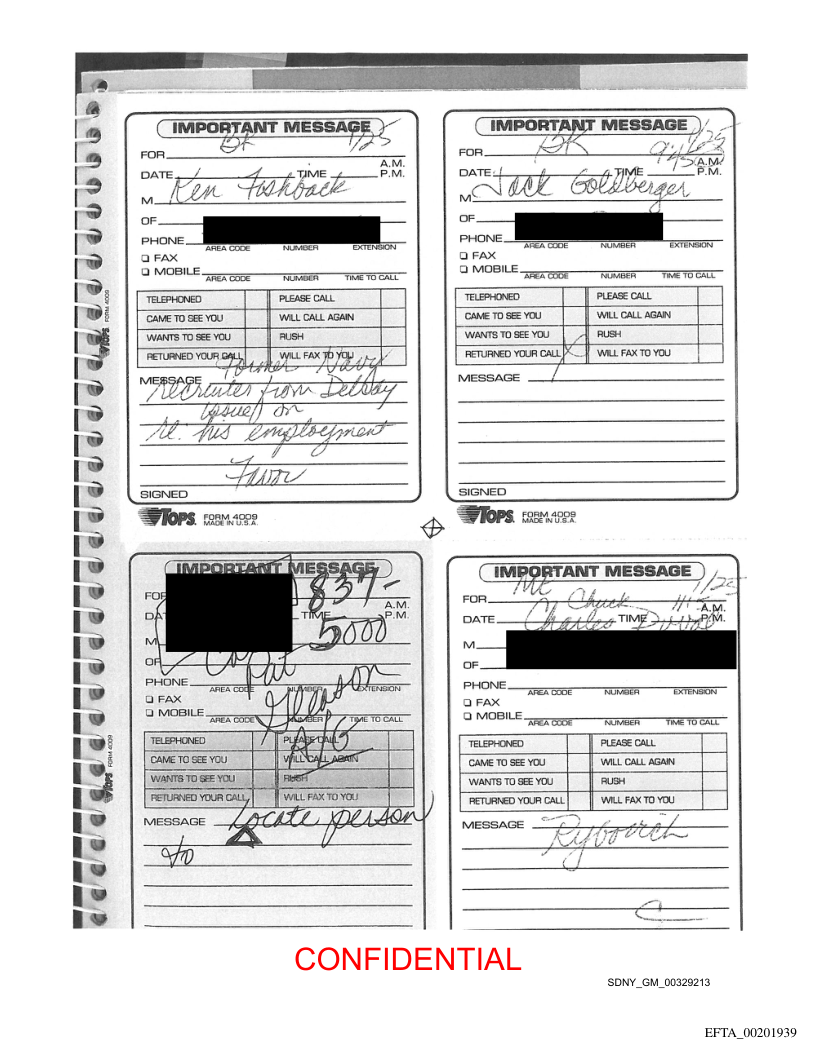 IMPORTANT MESSAGE
BK 1/25
FOR
A.M.
DATE TIME P.M.
M Ken Fishback
OF
PHONE
AREA CODE NUMBER EXTENSION
FAX
MOBILE
AREA CODE NUMBER TIME TO CALL
TELEPHONED PLEASE CALL
CAME TO SEE YOU WILL CALL AGAIN
WANTS TO SEE YOU RUSH
RETURNED YOUR CALL WILL FAX TO YOU
Former Navy
MESSAGE
recruiter from Delray
issue on
re: his employment
SIGNED
TOPS FORM 4009
MADE IN U.S.A.
IMPORTANT MESSAGE
BK 1/25
FOR
9:45 A.M.
DATE TIME P.M.
M Jack Goldberger
OF
PHONE
AREA CODE NUMBER EXTENSION
FAX
MOBILE
AREA CODE NUMBER TIME TO CALL
TELEPHONED PLEASE CALL
CAME TO SEE YOU WILL CALL AGAIN
WANTS TO SEE YOU RUSH
RETURNED YOUR CALL X WILL FAX TO YOU
MESSAGE
SIGNED
TOPS FORM 4009
MADE IN U.S.A.
TOPS FORM 4009
IMPORTANT MESSAGE
FOR 837-
A.M.
DA TIME 5000 P.M.
M
OF Pat
PHONE Gleason
AREA CODE NUMBER EXTENSION
FAX
MOBILE
AREA CODE NUMBER TIME TO CALL
A/G
TELEPHONED PLEASE CALL
CAME TO SEE YOU WILL CALL AGAIN
WANTS TO SEE YOU RUSH
RETURNED YOUR CALL WILL FAX TO YOU
MESSAGE Locate person
to
TOPS FORM 4009
IMPORTANT MESSAGE
1/25
FOR Chuck
A.M.
DATE Charles TIME P.M.
M
OF
PHONE
AREA CODE NUMBER EXTENSION
FAX
MOBILE
AREA CODE NUMBER TIME TO CALL
TELEPHONED PLEASE CALL
CAME TO SEE YOU WILL CALL AGAIN
WANTS TO SEE YOU RUSH
RETURNED YOUR CALL WILL FAX TO YOU
MESSAGE Rybovich
CONFIDENTIAL
SDNY_GM_00329213
EFTA_00201939